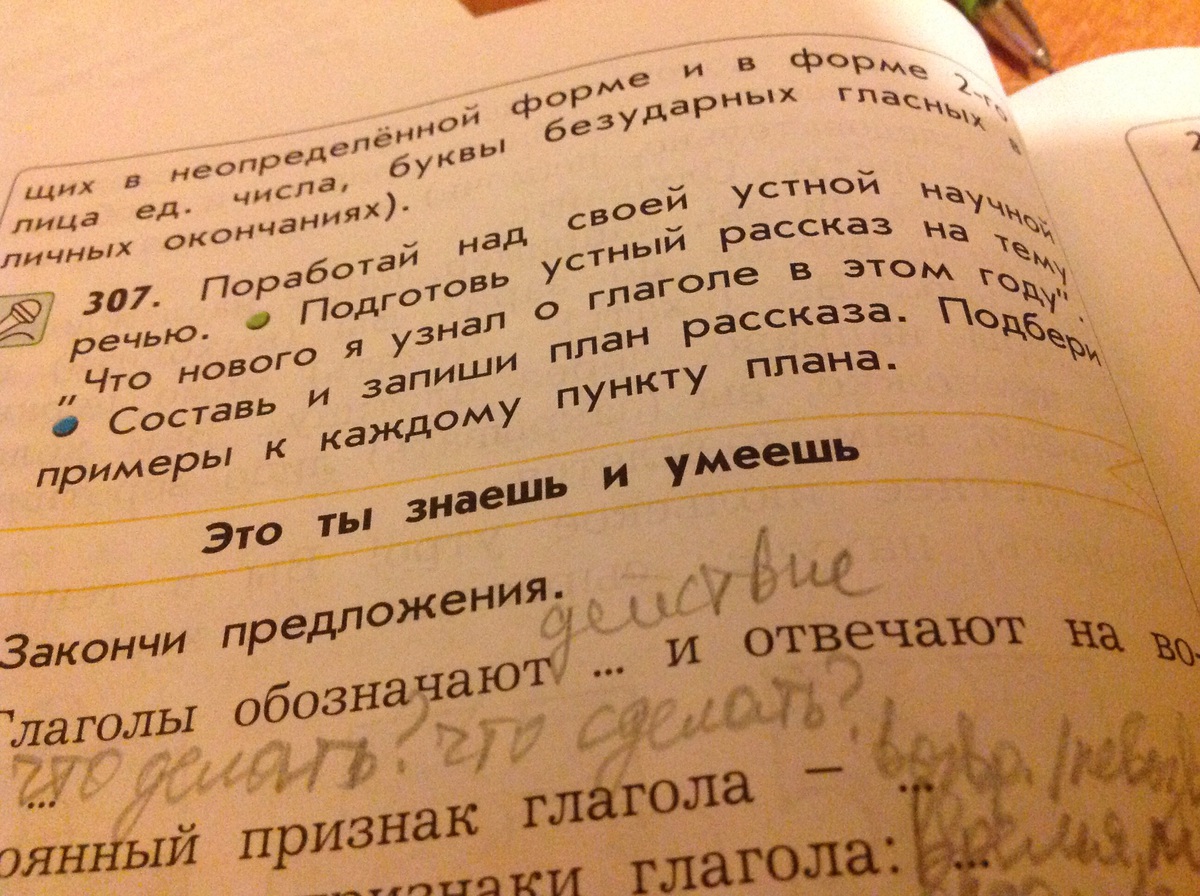 щих в неопределённой форме и в форме 2-го
лица ед. числа, буквы безударных гласных в
личных окончаниях).
307. Поработай над своей устной научной
речью. Подготовь устный рассказ на тему
„Что нового я узнал о глаголе в этом году".
Составь и запиши план рассказа. Подбери
примеры к каждому пункту плана.
Это ты знаешь и умеешь
Закончи предложения.
действие
Глаголы обозначают ... и отвечают на во-
что делать? что сделать?
...
оянный признак глагола – ...
возвр.
ризнаки глагола: ...
время,
2